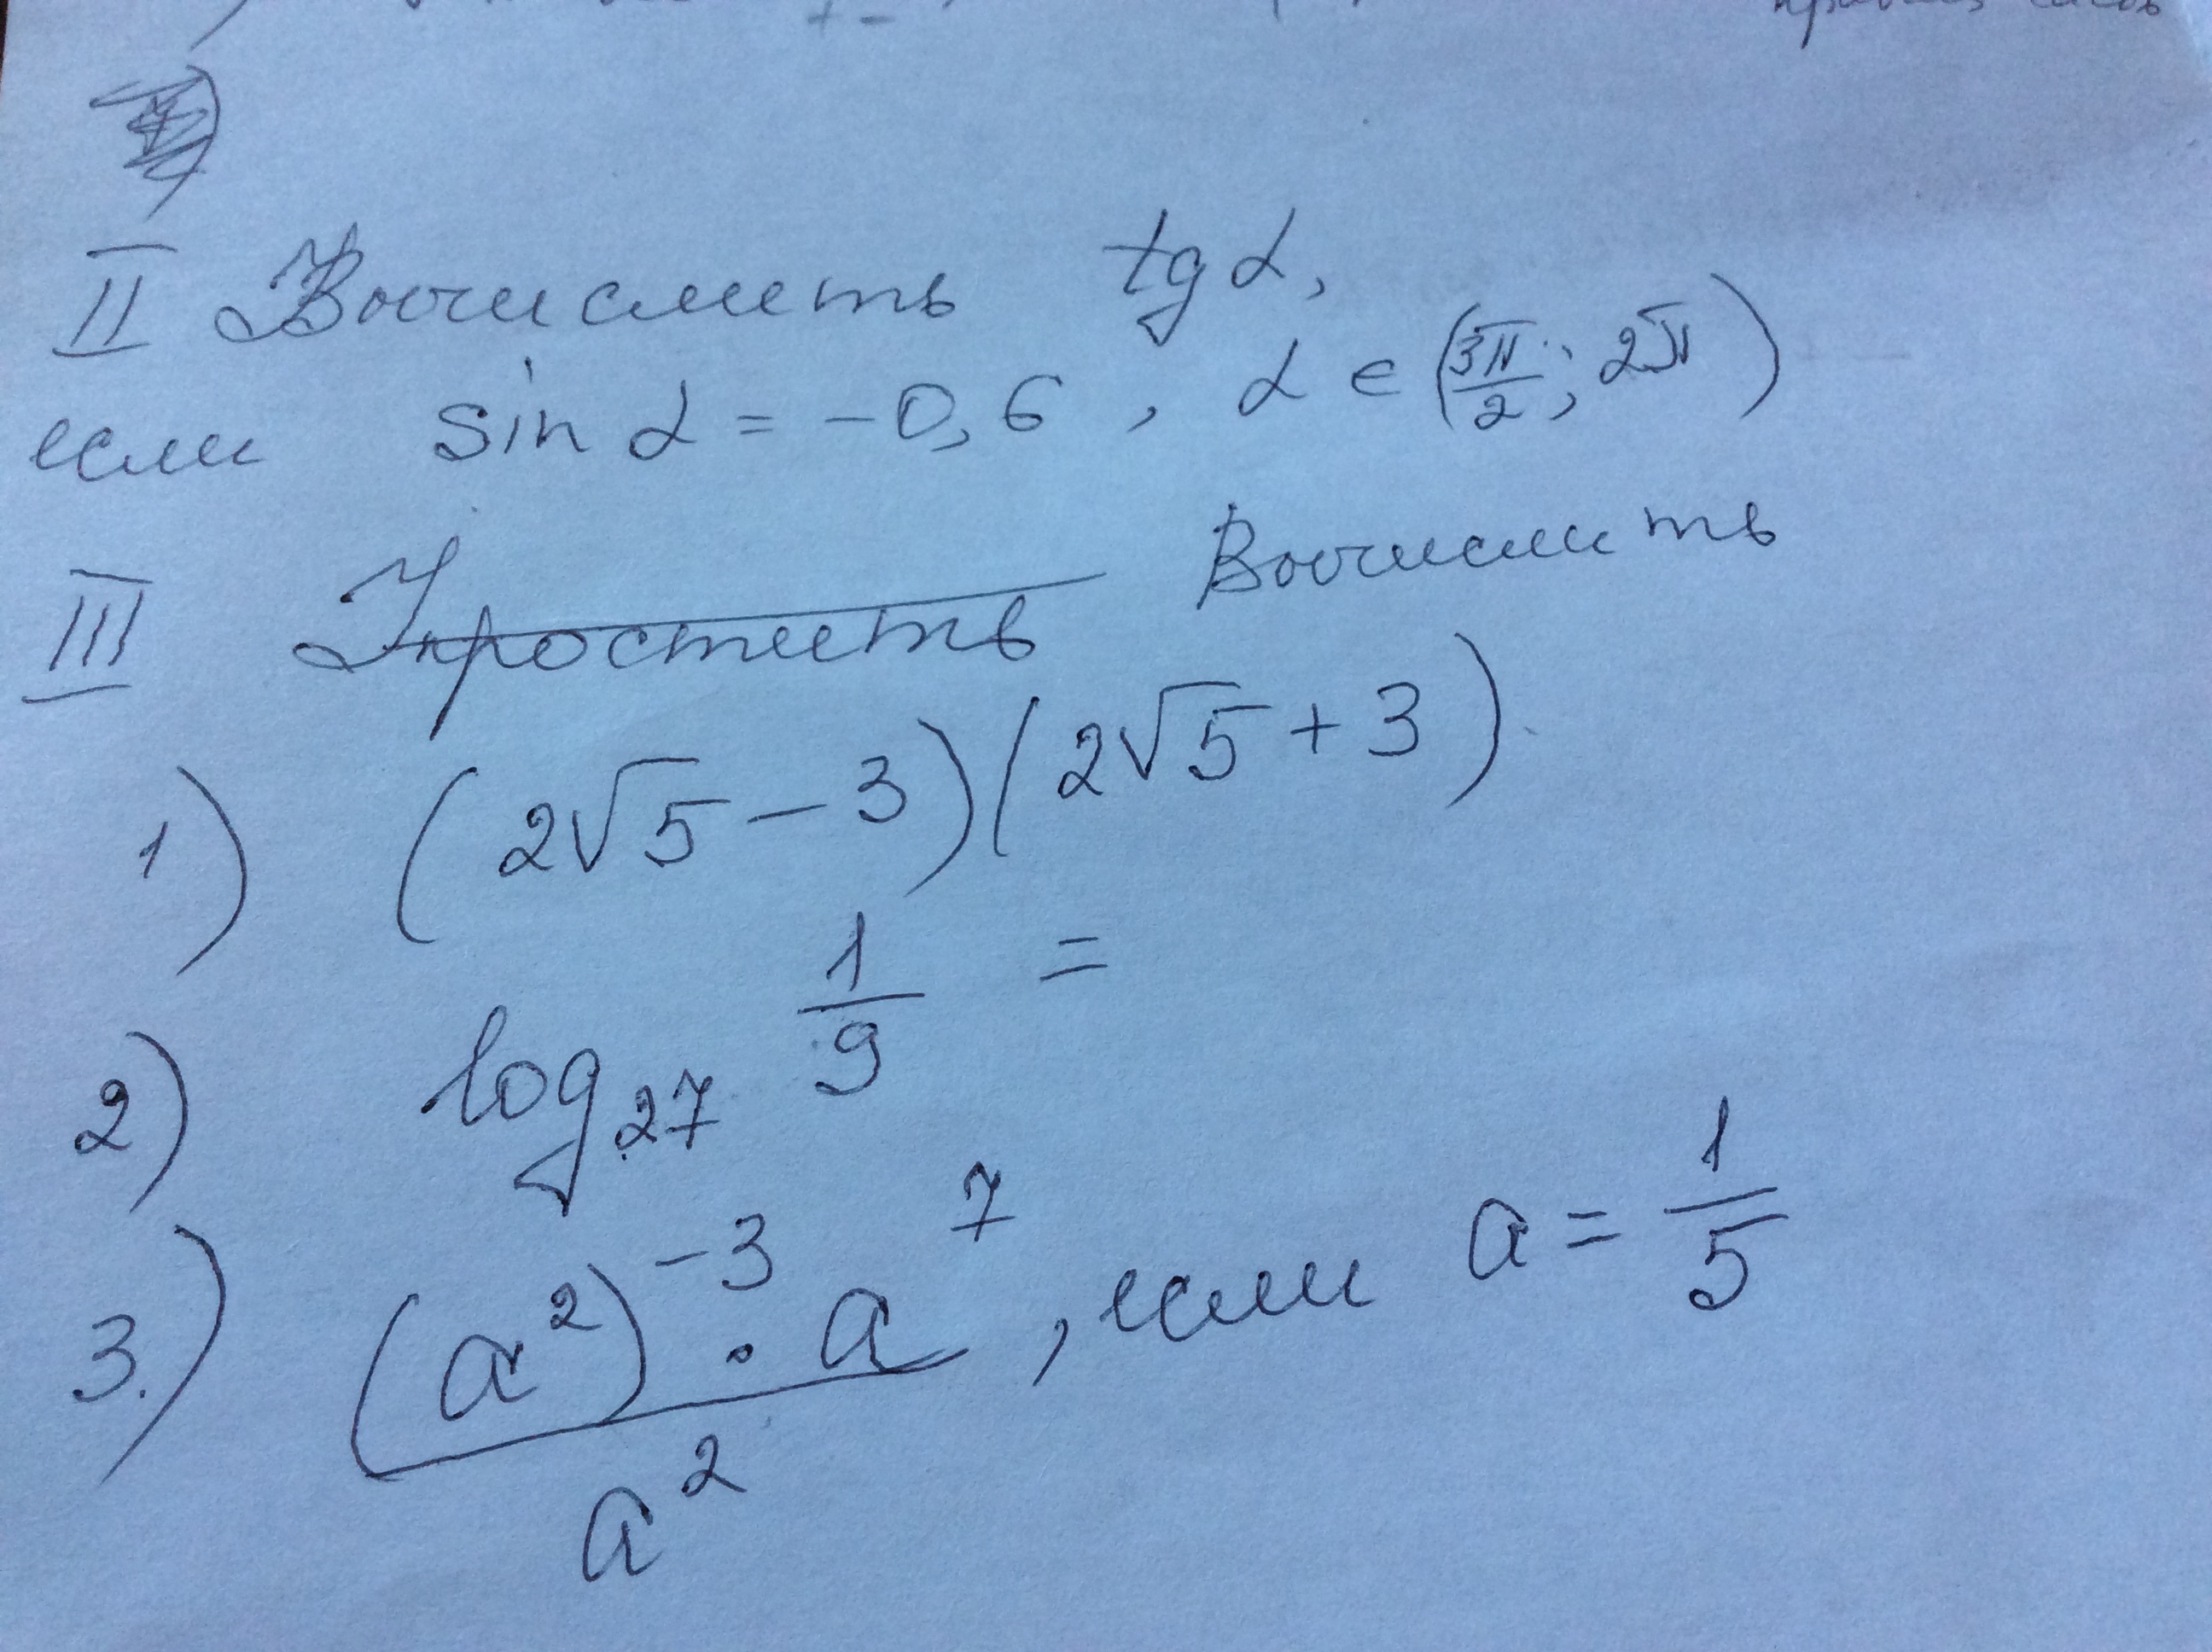 II Вычислить tg α,
если sin α = -0,6 , α ∈ (3π/2 ; 2π)
III Упростить Вычислить
1) (2√5 - 3)(2√5 + 3)
2) log₂₇ 1/9 =
3.) (a²)⁻³ · a⁷ / a² , если a = 1/5